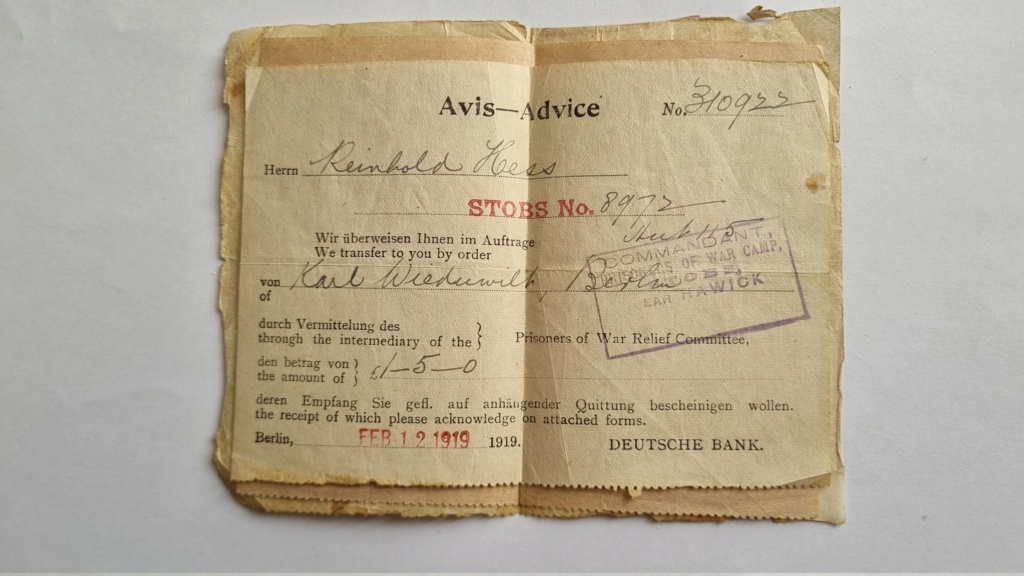 Avis—Advice
No. 310922
Herrn Reinhold Hess
STOBS No. 8972
Hut 45
Wir überweisen Ihnen im Auftrage
We transfer to you by order
COMMANDANT,
PRISONERS OF WAR CAMP,
STOBS,
NEAR HAWICK
von Karl Wiederwilt, Berlin
of
durch Vermittelung des }
through the intermediary of the } Prisoners of War Relief Committee,
den betrag von }
the amount of } £1–5–0
deren Empfang Sie gefl. auf anhängender Quittung bescheinigen wollen.
the receipt of which please acknowledge on attached forms.
Berlin, FEB 12 1919 1919.
DEUTSCHE BANK.